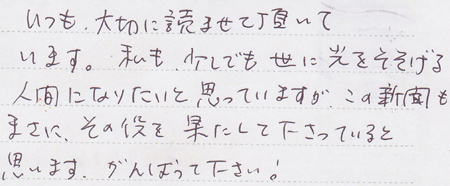 いつも、大切に読ませて頂いて
います。私も、少しでも世に光をそそげる
人間になりたいと思っていますが、この新聞も
まさに、その役を果たして下さっていると
思います。がんばって下さい!